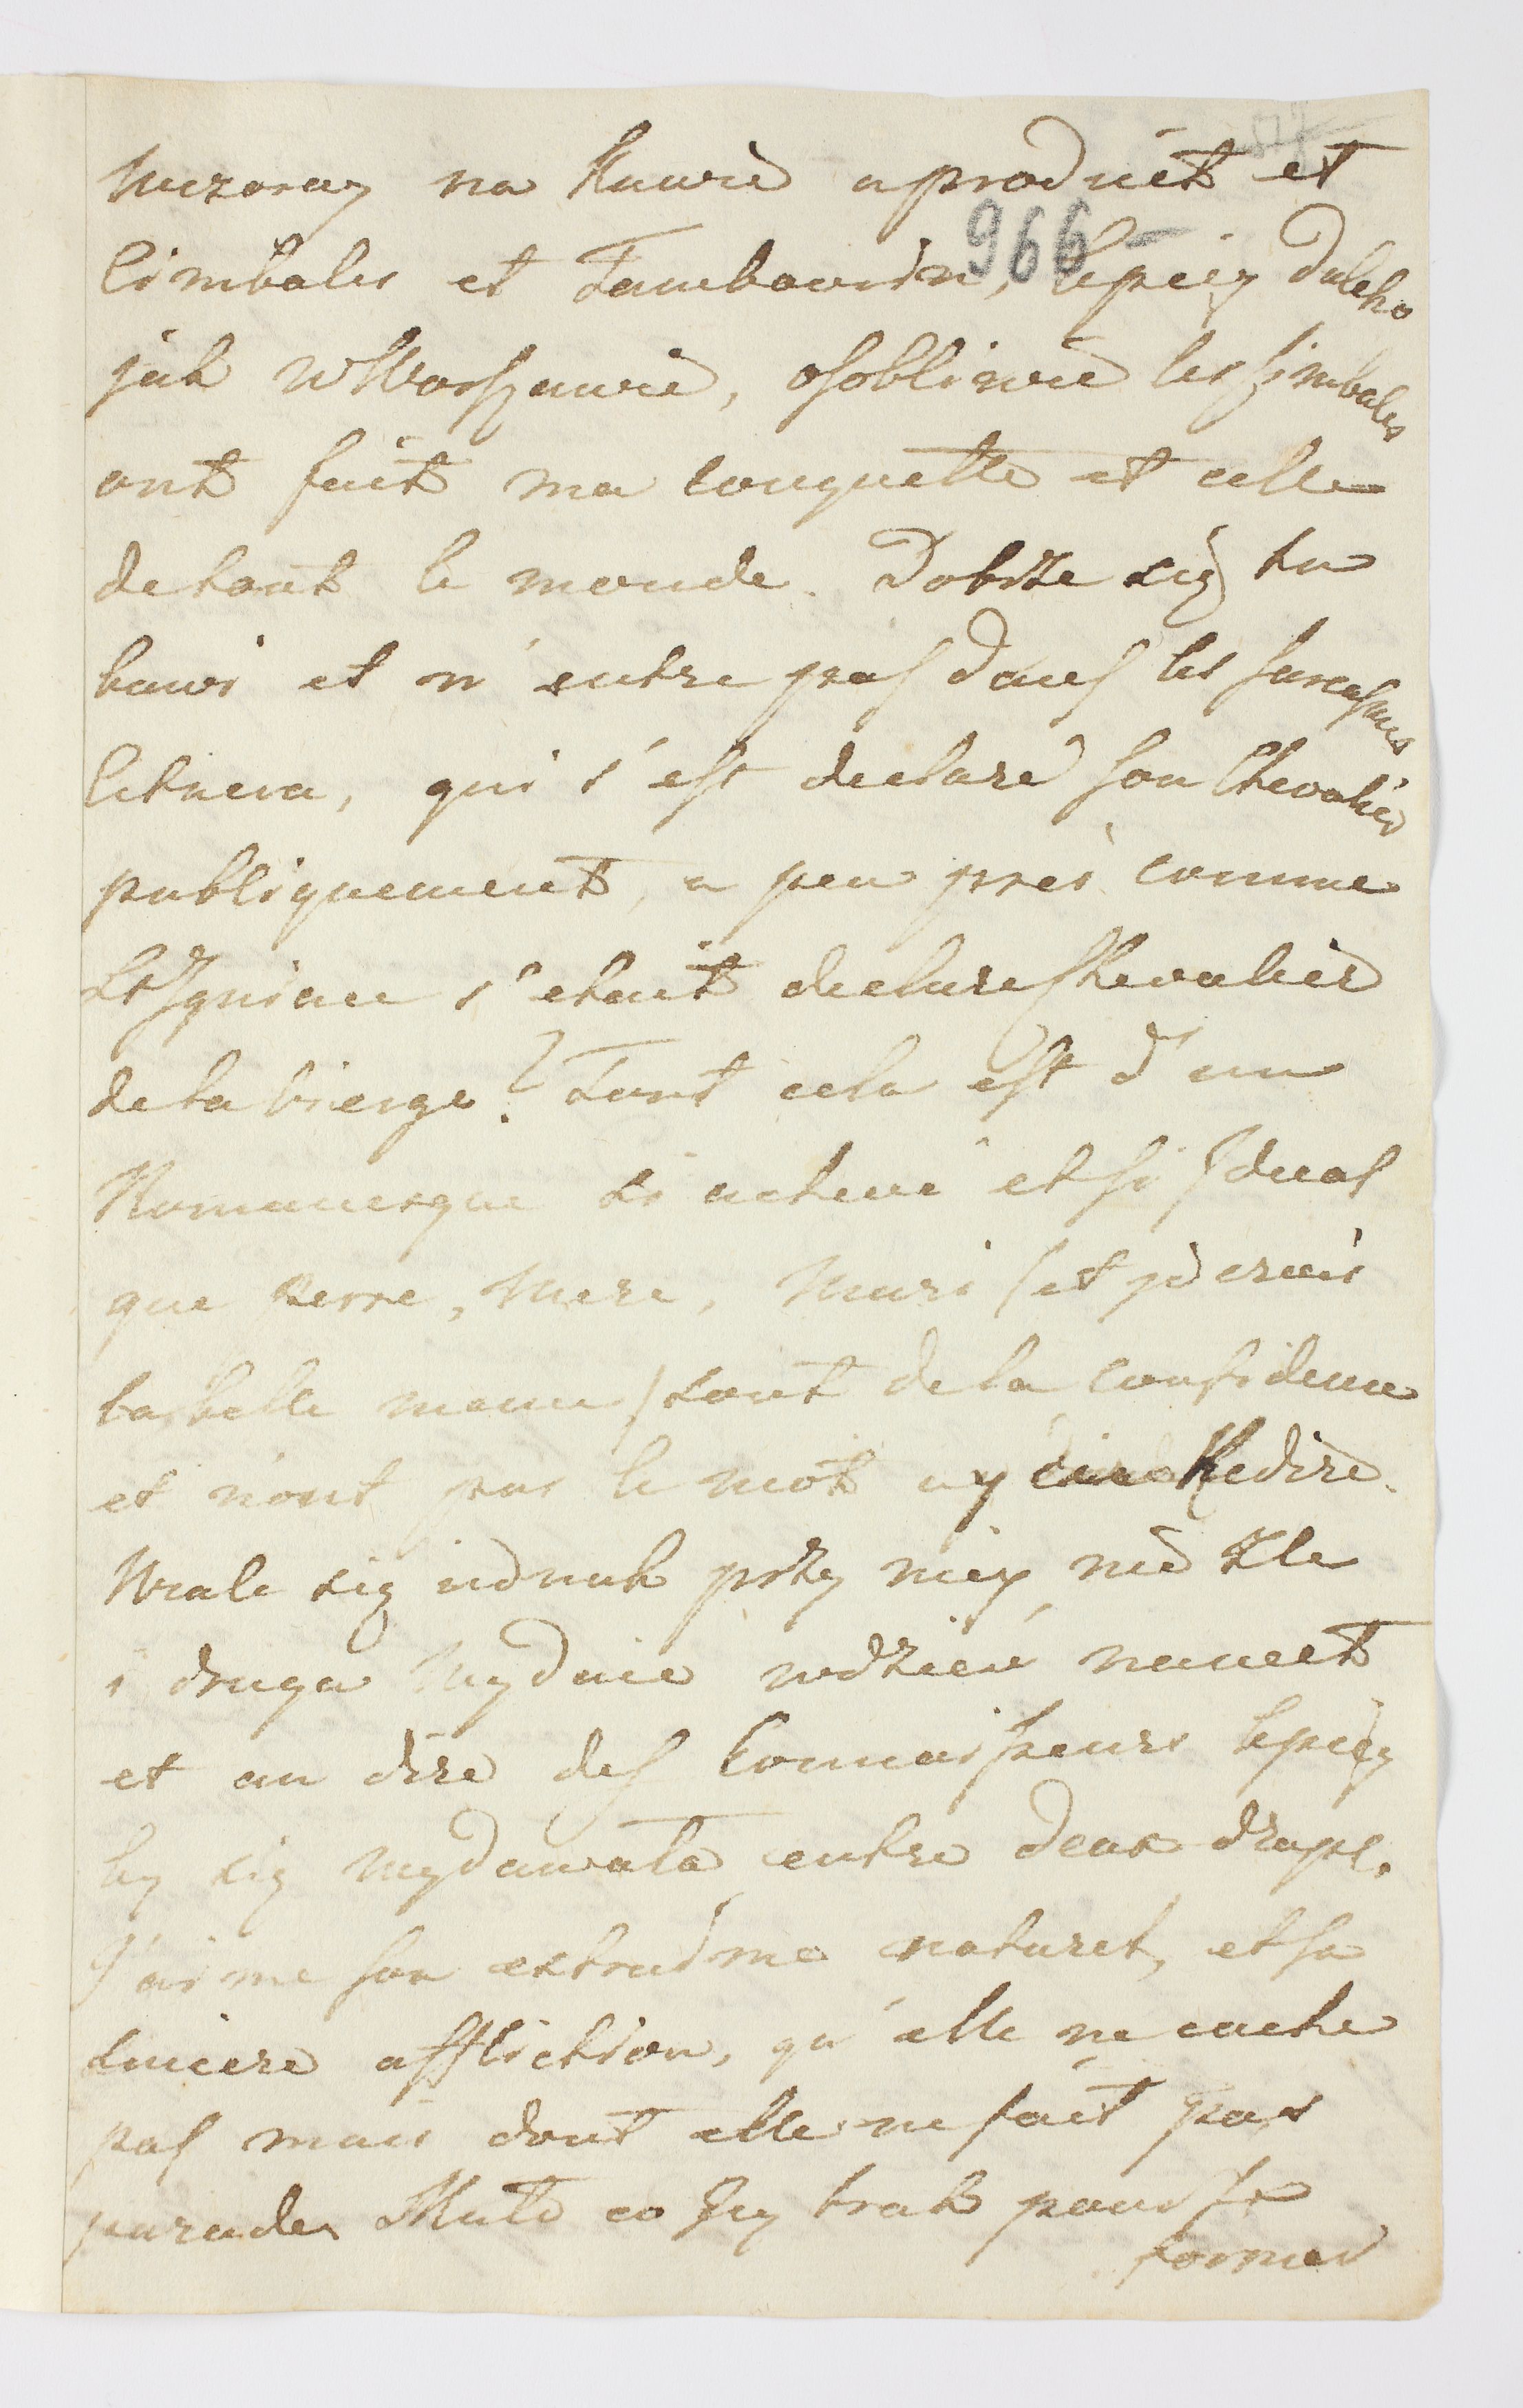 Wczoray na Kawie a produit et
966
Cimbales et Tambourin, lepiey daleko
jak w Warszawie, osobliwie les Simbales
ont fait ma conquette et celle
de tout le monde. Dobrze się tu
bawi et n'entre pas dans les
qui s'est declaré son Chevalier
publiquement, a peu près comme
St Ignace s'etait declare Chevalier
de la vierge? Tout cela est d'un
Romanesque si achevé et si Ideal
que Perre, Mere, Mari (et je crois
la belle mame) sont de la confidence
et n'ont pas le mot a y dire Redire.
Wcale się iednak przy niey nie zle
i druga wydaie w dzien nawet
et au dire des Connaisseurs lepiey
by się wydawała entre deux draps.
J'aime son extreme naturel, et sa
sincere affliction, qu'elle ne cache
pas mais dont elle ne fait pas
parade. Mało co Jey brak pour se
former